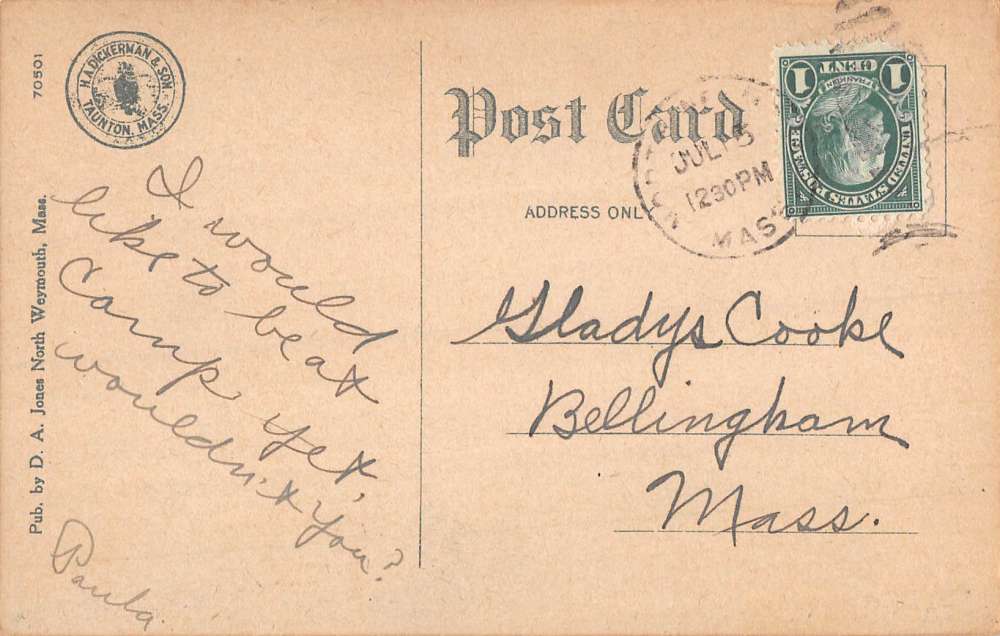 70501
H.A. DICKERMAN & SON
TAUNTON, MASS.
Pub. by D. A. Jones North Weymouth, Mass.
Post Card
ADDRESS ONLY
JUL 5
1230PM
MASS
1 CENT 1
FRANKLIN
UNITED STATES POSTAGE
I would
like to be at
Camp yet,
wouldn't you?
Paula.
Gladys Cooke
Bellingham
Mass.